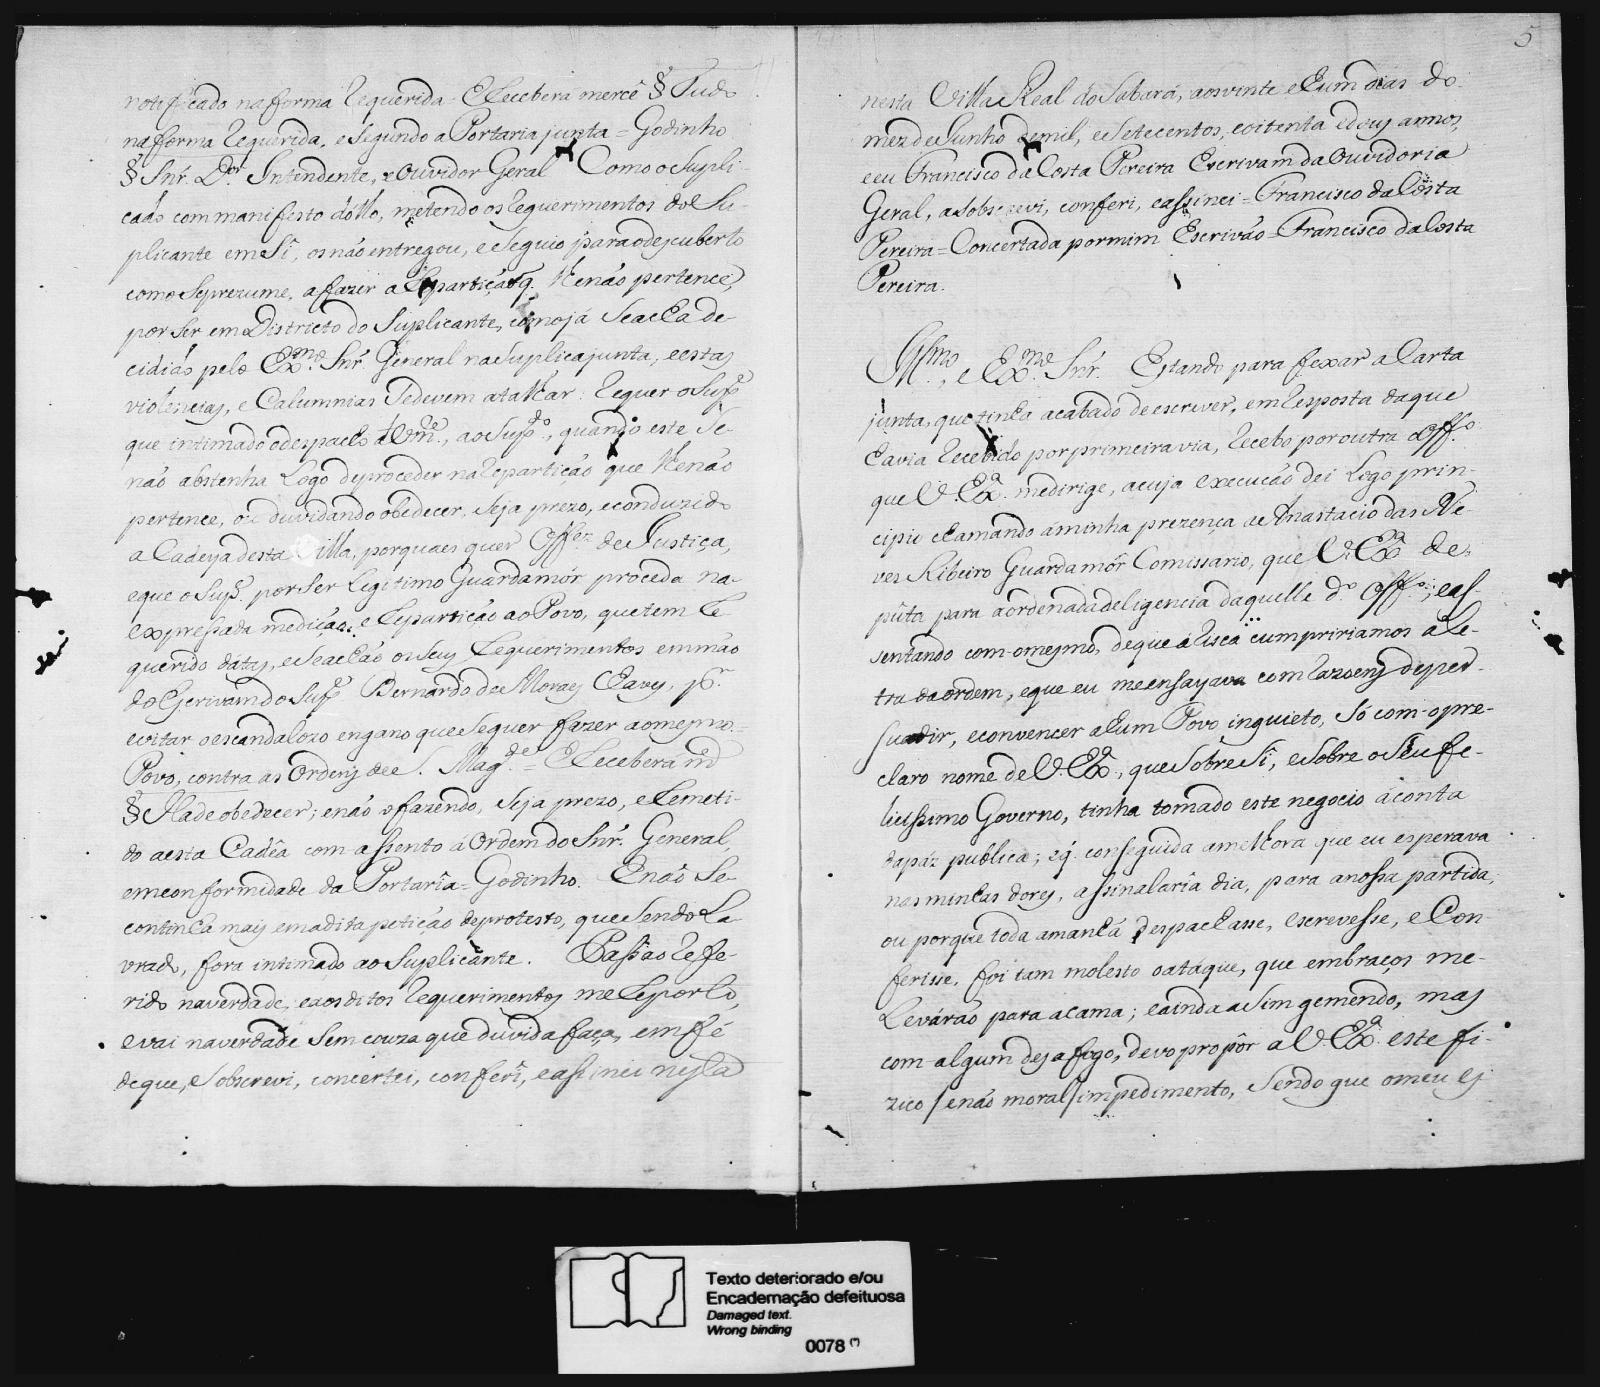 notificado na forma requerida = E Recebera mercê § Tudo
na forma requerida, e segundo a Portaria junta = Godinho
§ Snr. Dor. Intendente, e Ouvidor Geral Como o Supli-
cado com manifesto dóllo, metendo os requerimentos do Su-
plicante em Si, os não entregou, e seguio para o descuberto
como se prezume, a fazer a Repartição q. lhe não pertence,
por ser em Districto do Suplicante, como já se acha de-
cidido pelo Exmo. Snr. General na Suplica junta, e estas
violencias, e Calumnias se devem atalhar: requer o Supe.
que intimado o despacho a Vme., ao Supdo., quando este se
não abstenha logo de proceder na repartição que lhe não
pertence, ou duvidando obedecer, seja prezo, e conduzido
a Cadeya desta Villa, por quaes quer Offes. de Justiça,
e que o Supe. por ser legitimo Guardamór proceda na
expressada medição, e repartição ao Povo, que tem re-
querido dátas, e se achão os seus requerimentos em mão
do Escrivam do Supe. Bernardo de Moraes Chaves, pa.
evitar o escandalozo engano que se quer fazer ao mesmo
Povo, contra as Ordens de S. Magde. = E Recebera md.
§ Hade obedecer; e não o fazendo, seja prezo, e remeti-
do a esta Cadêa com assento á Ordem do Snr. General,
em conformidade da Portarîa = Godinho. E não se
continha mais em a dita petição de protesto, que sendo la-
vrado, fora intimado ao Suplicante. Passa o refe-
rido na verdade, e aos ditos requerimentos me reporto,
e vai na verdade sem couza que duvida faça, em fé
de que, e sobscrevi, concertei, conferî, e assinei nesta
5
nesta Villa Real do Sabará, aos vinte e hum dias do
mez de Junho de mil, e setecentos, e oitenta e dous annos,
e eu Francisco da Costa Pereira Escrivam da Ouvidoria
Geral, a sobscrevi, conferi, e assinei = Francisco da Costa
Pereira = Concertada por mim Escrivão = Francisco da Costa
Pereira.
Illmo., e Exmo. Snr. Estando para fexar a Carta
junta, que tinha acabado de escrever, em resposta da que
havia recebido por primeira via, recebo por outra o Offo.
que V. Exa. me dirige, a cuja execucão dei logo prin-
cipio chamando á minha prezença a Anastacio das Ne-
ves Ribeiro Guardamór Comissario, que V. Exa. de-
puta para a ordenada deligencia daquelle do. Offo.; e as-
sentando com o mesmo, de que á risca cumpririamos a le-
tra da ordem, e que eu me ensayava com razoens de per-
suadir, e convencer a hum Povo inquieto, só com o pre-
claro nome de V. Exa., que sobre Si, e sobre o Seu fe-
licissimo Governo, tinha tomado este negocio á conta
da páz publica; e q. conseguida a melhora que eu esperava
nas minhas dores, assinalarîa dia, para a nossa partida,
ou porque toda a manhã despachasse, escrevesse, e Con-
ferisse, foi tam molesto o atáque, que em braços me
levárão para a cama; e ainda asim gemendo, mas
com algum desafogo, devo propôr a V. Exa. este fi-
zico / e não moral / impedimento, sendo que o meu es
Texto deteriorado e/ou
Encadernação defeituosa
Damaged text.
Wrong binding
0078 (*)